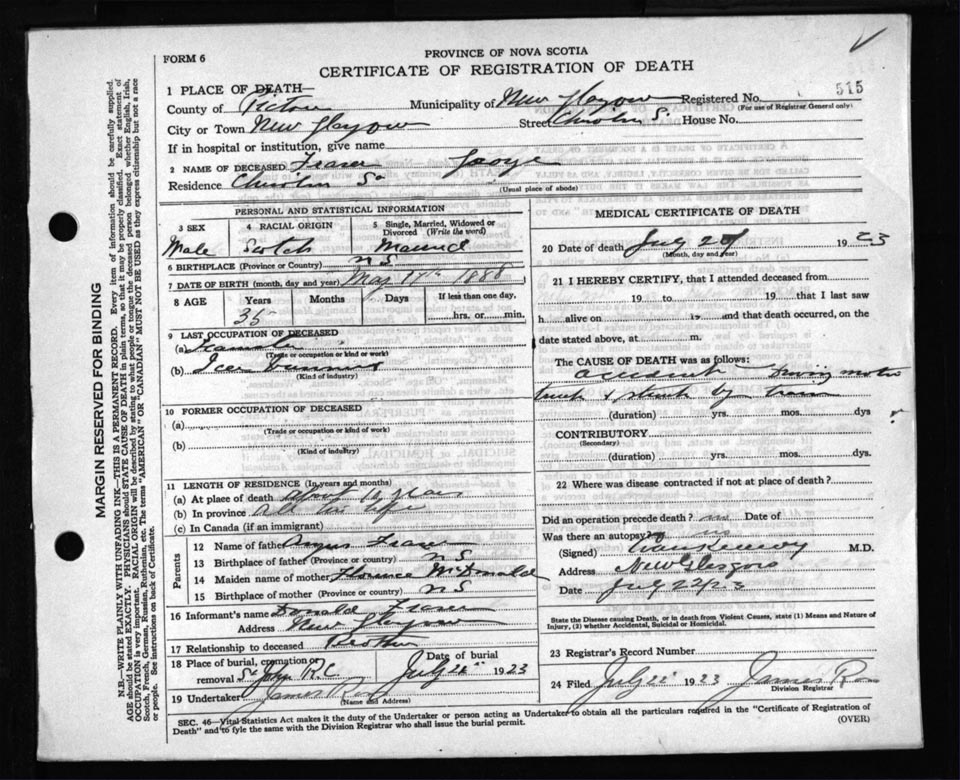 PROVINCE OF NOVA SCOTIA
FORM 6
CERTIFICATE OF REGISTRATION OF DEATH
515
1 PLACE OF DEATH—
County of Pictou Municipality of New Glasgow Registered No.
(For use of Registrar General only)
City or Town New Glasgow Street House No.
If in hospital or institution, give name
2 NAME OF DECEASED Fraser George
Residence (Usual place of abode)
PERSONAL AND STATISTICAL INFORMATION
3 SEX 4 RACIAL ORIGIN 5 Single, Married, Widowed or Divorced (Write the word)
Male Scotch Married
6 BIRTHPLACE (Province or Country) N S
7 DATE OF BIRTH (month, day and year) 1888
8 AGE Years Months Days If less than one day,
35 hrs. or min.
9 LAST OCCUPATION OF DECEASED
(a) Teamster
(Trade or occupation or kind or work)
(b) Ice
(Kind of industry)
10 FORMER OCCUPATION OF DECEASED
(a)
(Trade or occupation or kind or work)
(b)
(Kind of industry)
11 LENGTH OF RESIDENCE (In years and months)
(a) At place of death about years
(b) In province All his life
(c) In Canada (if an immigrant)
Parents
12 Name of father Angus Fraser
13 Birthplace of father (Province or country) N S
14 Maiden name of mother Florence McDonald
15 Birthplace of mother (Province or country) N S
16 Informant's name Donald Fraser
Address New Glasgow
17 Relationship to deceased Brother
18 Place of burial, cremation or removal Date of burial
St John R.C. July 22 1923
19 Undertaker James Ross
(Name and Address)
MEDICAL CERTIFICATE OF DEATH
20 Date of death July 1923
(Month, day and year)
21 I HEREBY CERTIFY, that I attended deceased from
19 to 19 that I last saw
h alive on 19 and that death occurred, on
date stated above, at m.
The CAUSE OF DEATH was as follows:
accident driving motor
truck & struck by train
(duration) yrs. mos. dys
CONTRIBUTORY
(Secondary)
(duration) yrs. mos. dys.
22 Where was disease contracted if not at place of death?
Did an operation precede death? no Date of
Was there an autopsy? no
(Signed) M.D.
Address New Glasgow
Date July 22/23
State the Disease causing Death, or in death from Violent Causes, state (1) Means and Nature of Injury, (2) whether Accidental, Suicidal or Homicidal.
23 Registrar's Record Number
24 Filed July 22 1923 James Ross
Division Registrar
SEC. 46—Vital Statistics Act makes it the duty of the Undertaker or person acting as Undertaker to obtain all the particulars required in the "Certificate of Registration of
Death" and to fyle the same with the Division Registrar who shall issue the burial permit.
(OVER)
MARGIN RESERVED FOR BINDING
N.B.—WRITE PLAINLY WITH UNFADING INK—THIS IS A PERMANENT RECORD. Every item of information should be carefully supplied.
AGE should be stated EXACTLY. PHYSICIANS should STATE CAUSE OF DEATH in plain terms, so that it may be properly classified. Exact statement of
OCCUPATION is very important. RACIAL ORIGIN will be described by stating to what people or tongue the deceased person belonged, whether English, Irish,
Scotch, French, German, Russian, Ruthenian, etc. The terms "AMERICAN" OR "CANADIAN" MUST NOT BE USED as they express citizenship but not a race
or people. See instructions on back of Certificate.